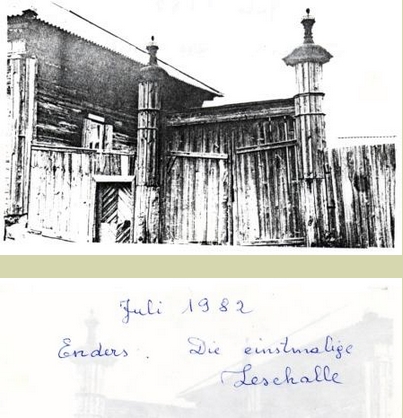 Juli 1982
Enders. Die einstmalige
Lesehalle